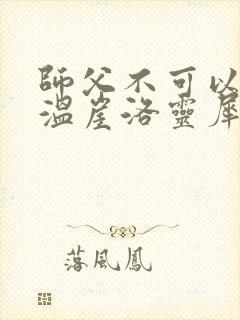 師父不可以
溫崖洛靈犀
落風鳳